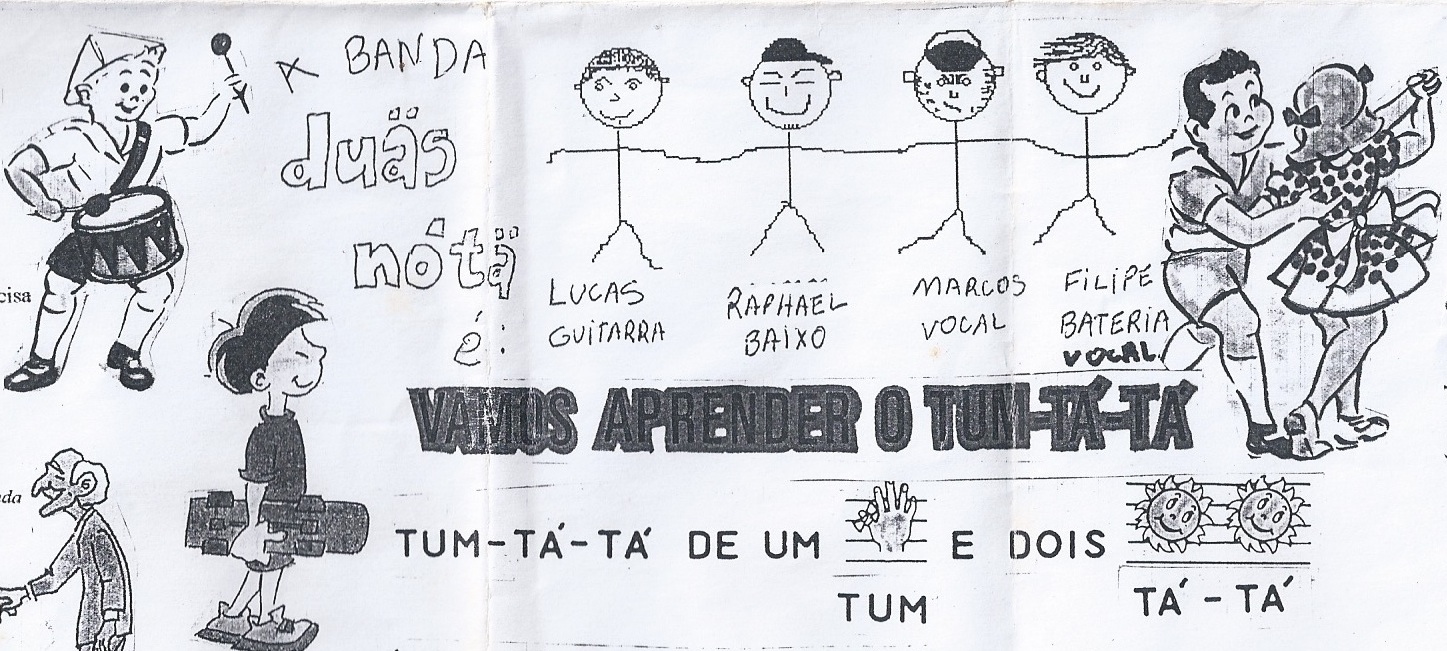 A BANDA
duäs
nótä
é:
LUCAS
GUITARRA
RAPHAEL
BAIXO
MARCOS
VOCAL
FILIPE
BATERIA
VOCAL
cisa
da
VAMOS APRENDER O TUM-TÁ-TÁ
TUM-TÁ-TÁ DE UM E DOIS
TUM
TÁ-TÁ